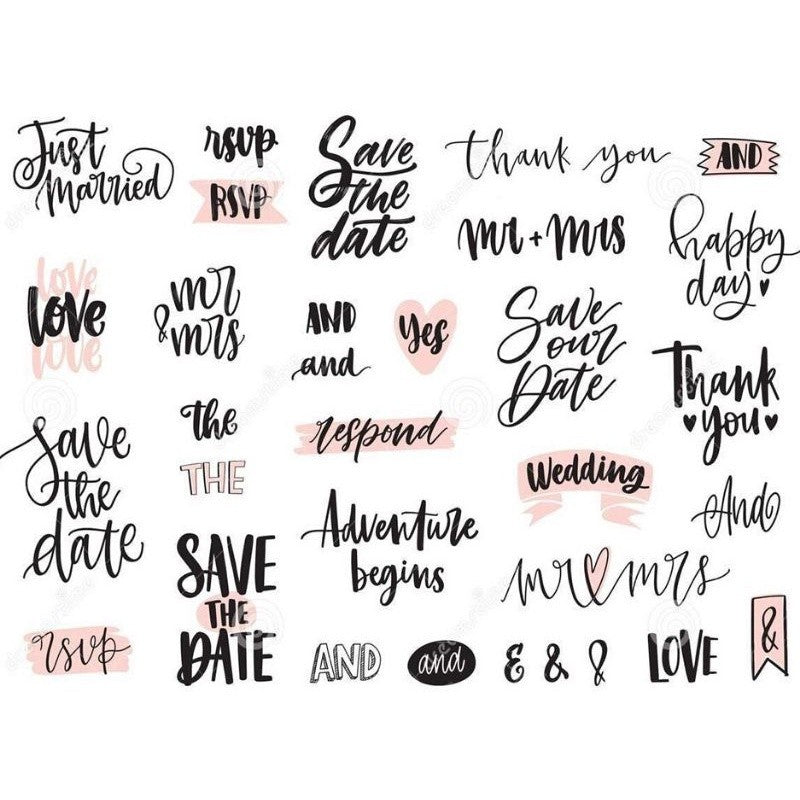 Just
Married
rsvp
RSVP
Save
the
date
thank you
AND
mr + mrs
happy
day
love
love
love
mr
& mrs
AND
and
Yes
Save
our
Date
Thank
you
save
the
date
the
THE
respond
Wedding
And
Adventure
begins
SAVE
THE
DATE
mr mrs
rsvp
AND
and
& & &
LOVE
&